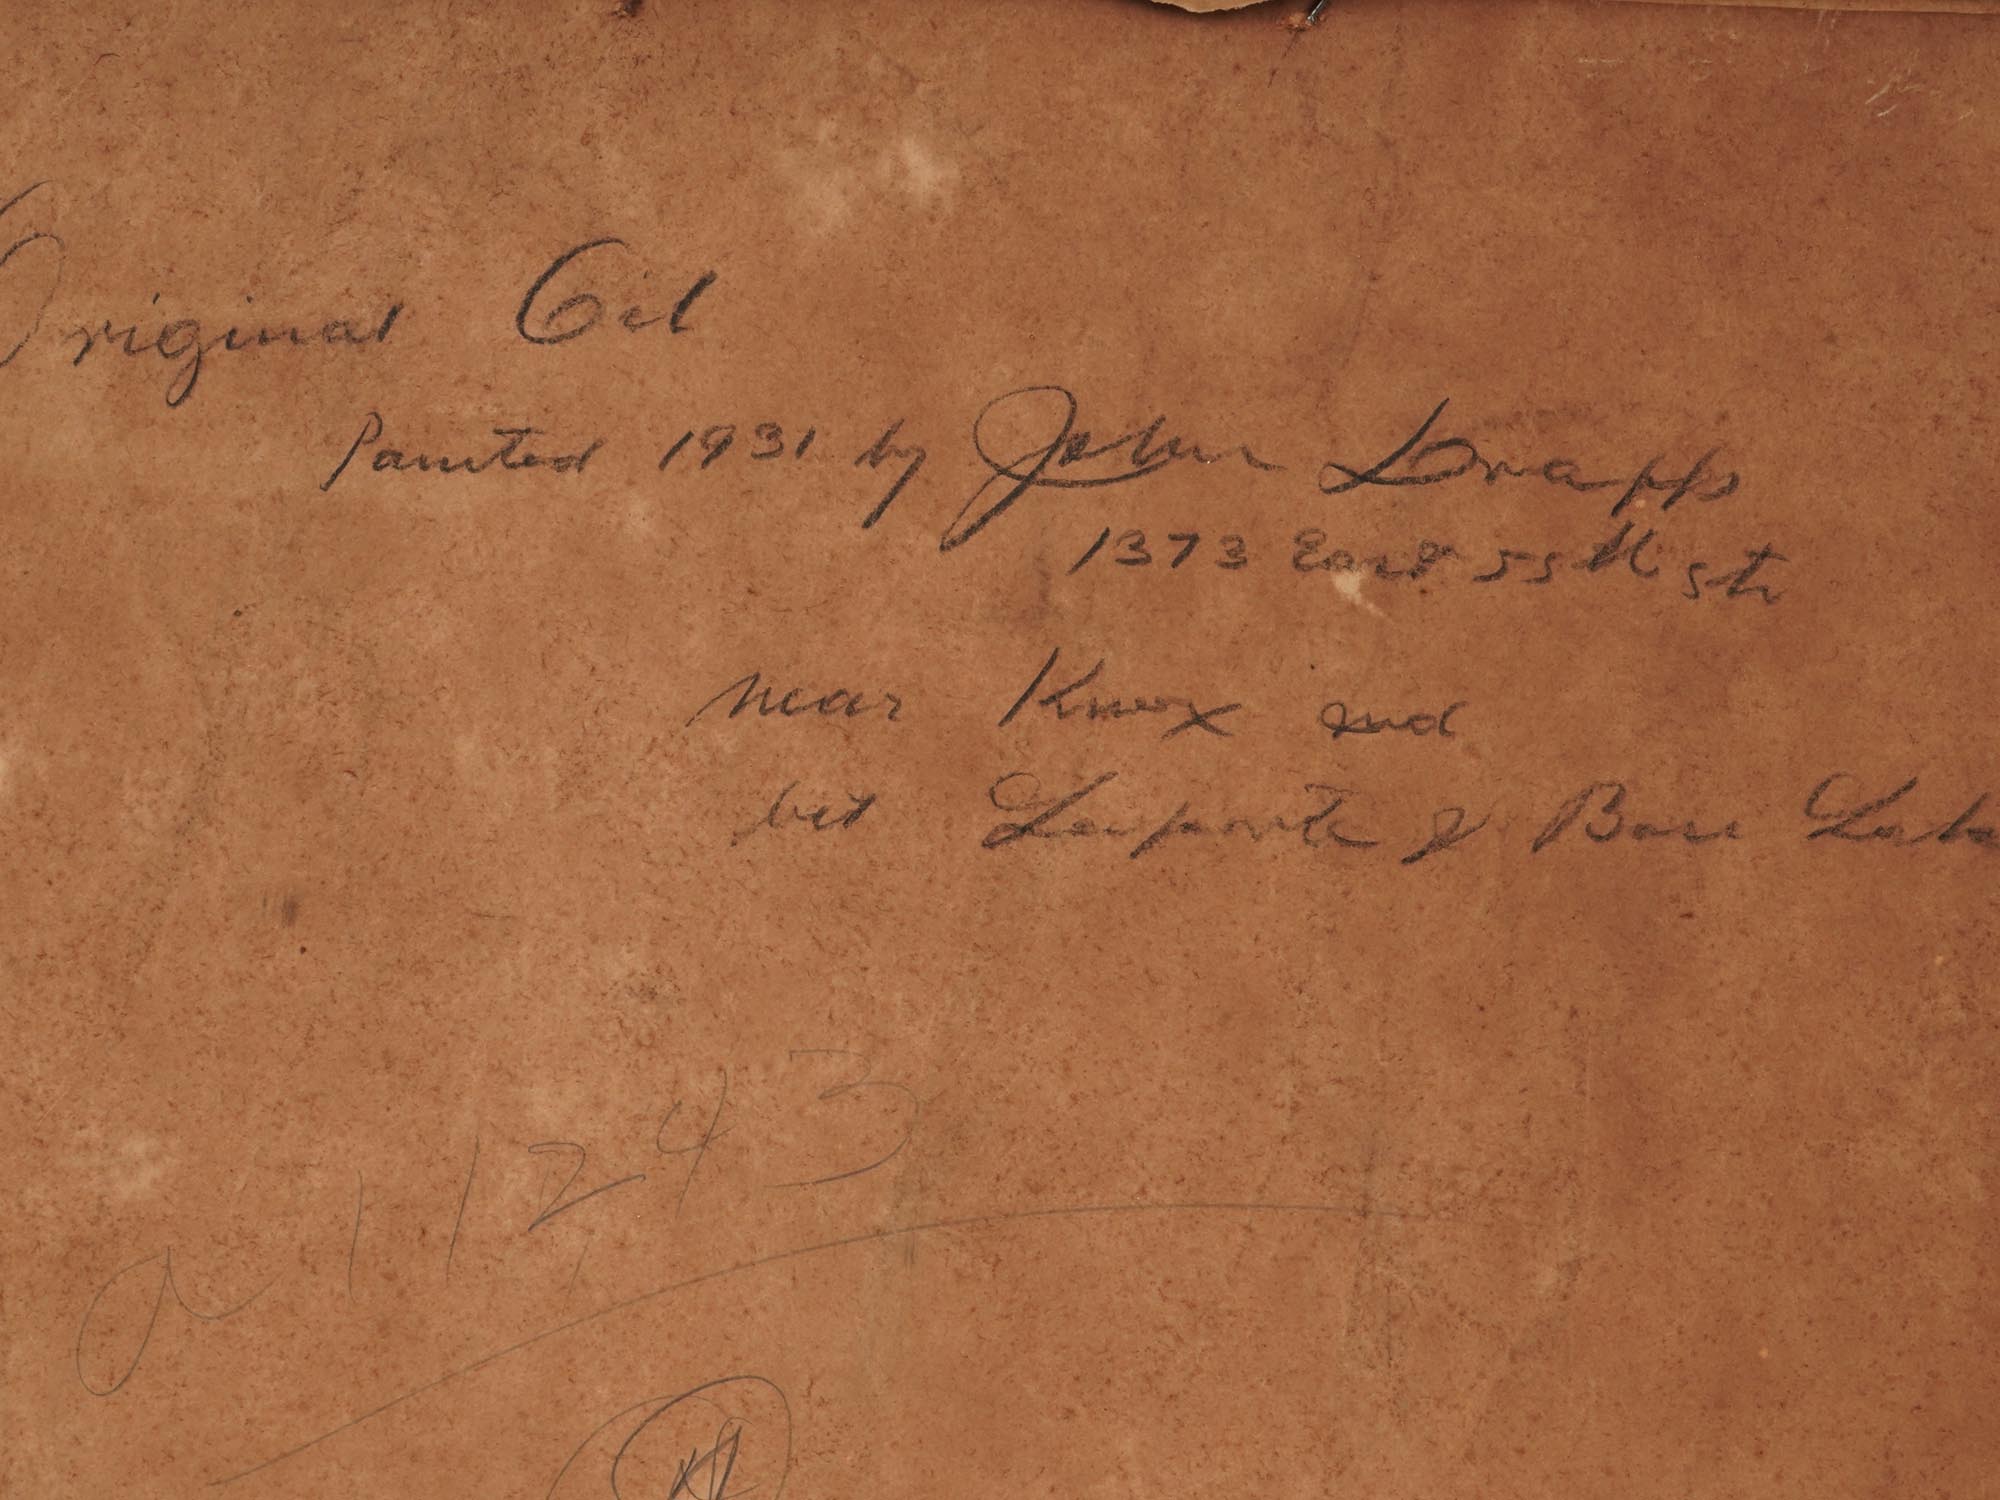 Original Oil
Painted 1931 by John Drapps
1373 East 55th St
near Knox ind
bet Laporte & Bass Lake
a 11243